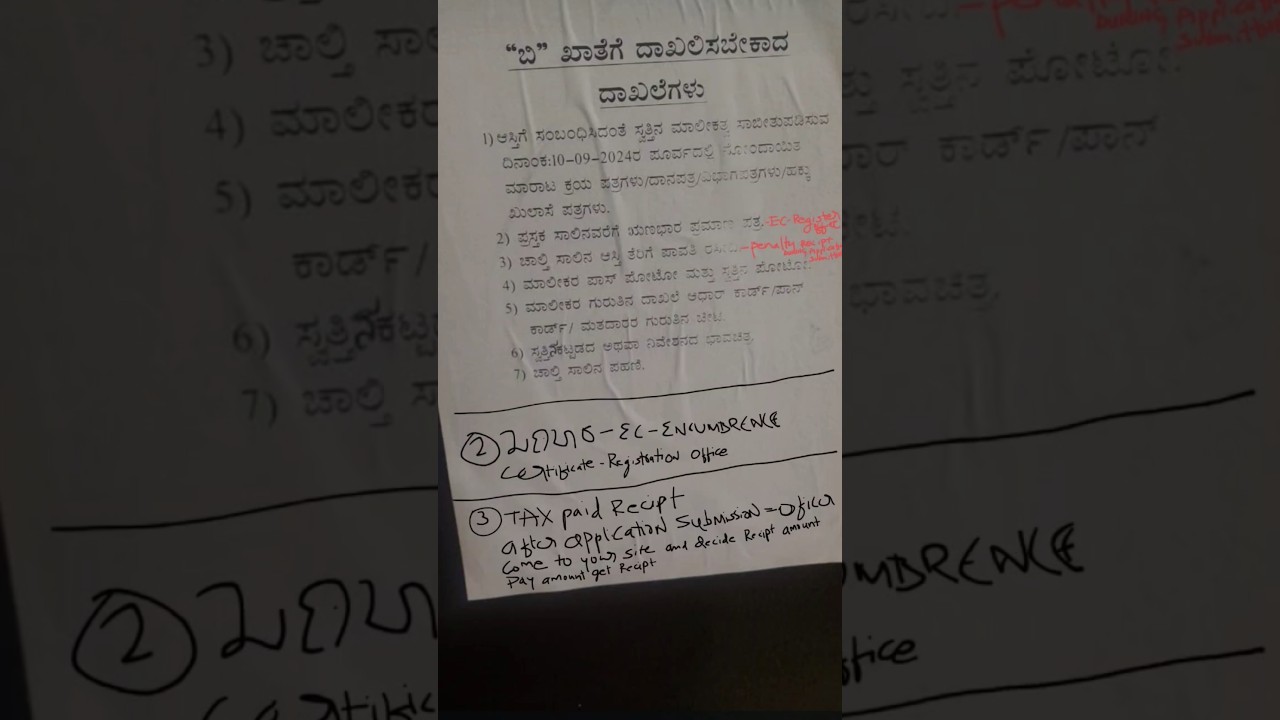 "ಬಿ" ಖಾತೆಗೆ ದಾಖಲಿಸಬೇಕಾದ
ದಾಖಲೆಗಳು
1) ಆಸ್ತಿಗೆ ಸಂಬಂಧಿಸಿದಂತೆ ಸ್ವತ್ತಿನ ಮಾಲೀಕತ್ವ ಸಾಬೀತುಪಡಿಸುವ
ದಿನಾಂಕ:10-09-2024ರ ಪೂರ್ವದಲ್ಲಿ ನೋಂದಾಯಿತ
ಮಾರಾಟ ಕ್ರಯ ಪತ್ರಗಳು/ದಾನಪತ್ರ/ವಿಭಾಗಪತ್ರಗಳು/ಹಕ್ಕು
ಖುಲಾಸೆ ಪತ್ರಗಳು.
2) ಪ್ರಸ್ತಕ ಸಾಲಿನವರೆಗೆ ಋಣಭಾರ ಪ್ರಮಾಣ ಪತ್ರ.-EC-Register office
3) ಚಾಲ್ತಿ ಸಾಲಿನ ಆಸ್ತಿ ತೆರಿಗೆ ಪಾವತಿ ರಸೀದಿ-penalty recipt
4) ಮಾಲೀಕರ ಪಾಸ್ ಪೋಟೋ ಮತ್ತು ಸ್ವತ್ತಿನ ಪೋಟೋ.
5) ಮಾಲೀಕರ ಗುರುತಿನ ದಾಖಲೆ ಆಧಾರ್ ಕಾರ್ಡ್/ಪಾನ್
ಕಾರ್ಡ್/ ಮತದಾರರ ಗುರುತಿನ ಚೀಟಿ.
6) ಸ್ವತ್ತಿನ ಕಟ್ಟಡದ ಅಥವಾ ನಿವೇಶನದ ಭಾವಚಿತ್ರ.
7) ಚಾಲ್ತಿ ಸಾಲಿನ ಪಹಣಿ.
2 - EC - ENCUMBRENCE
Certificate - Registration office
3 TAX paid Recipt
after application submission = officer
come to your site and decide Recipt amount
Pay amount get Recipt